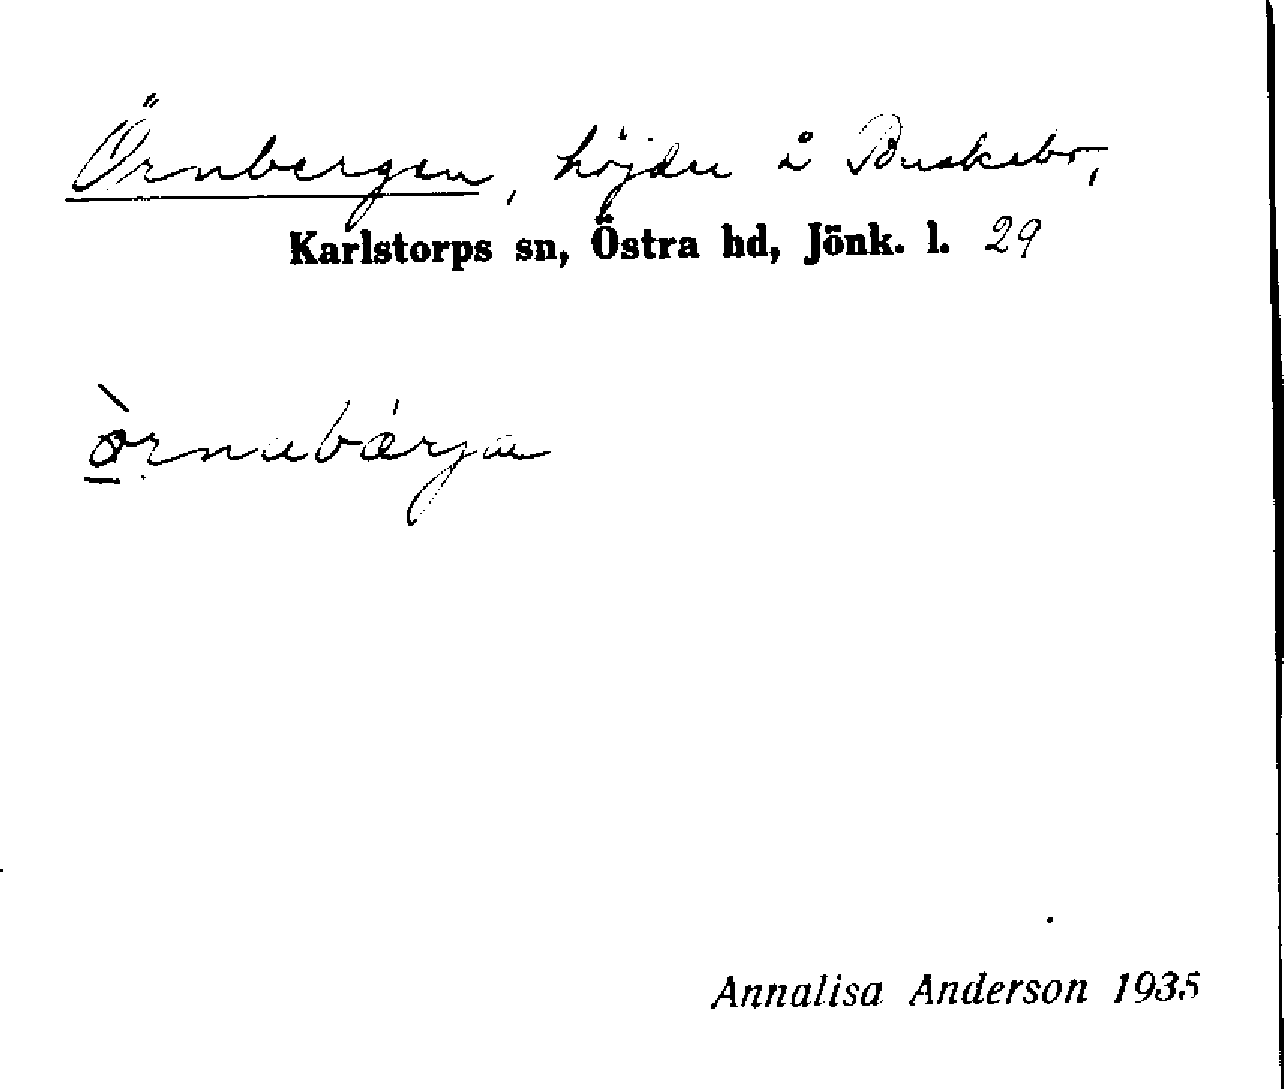 Örnbergen, höjder å Buskebo,
Karlstorps sn, Östra hd, Jönk. l. 29
ò̱rnabárja
Annalisa Anderson 1935